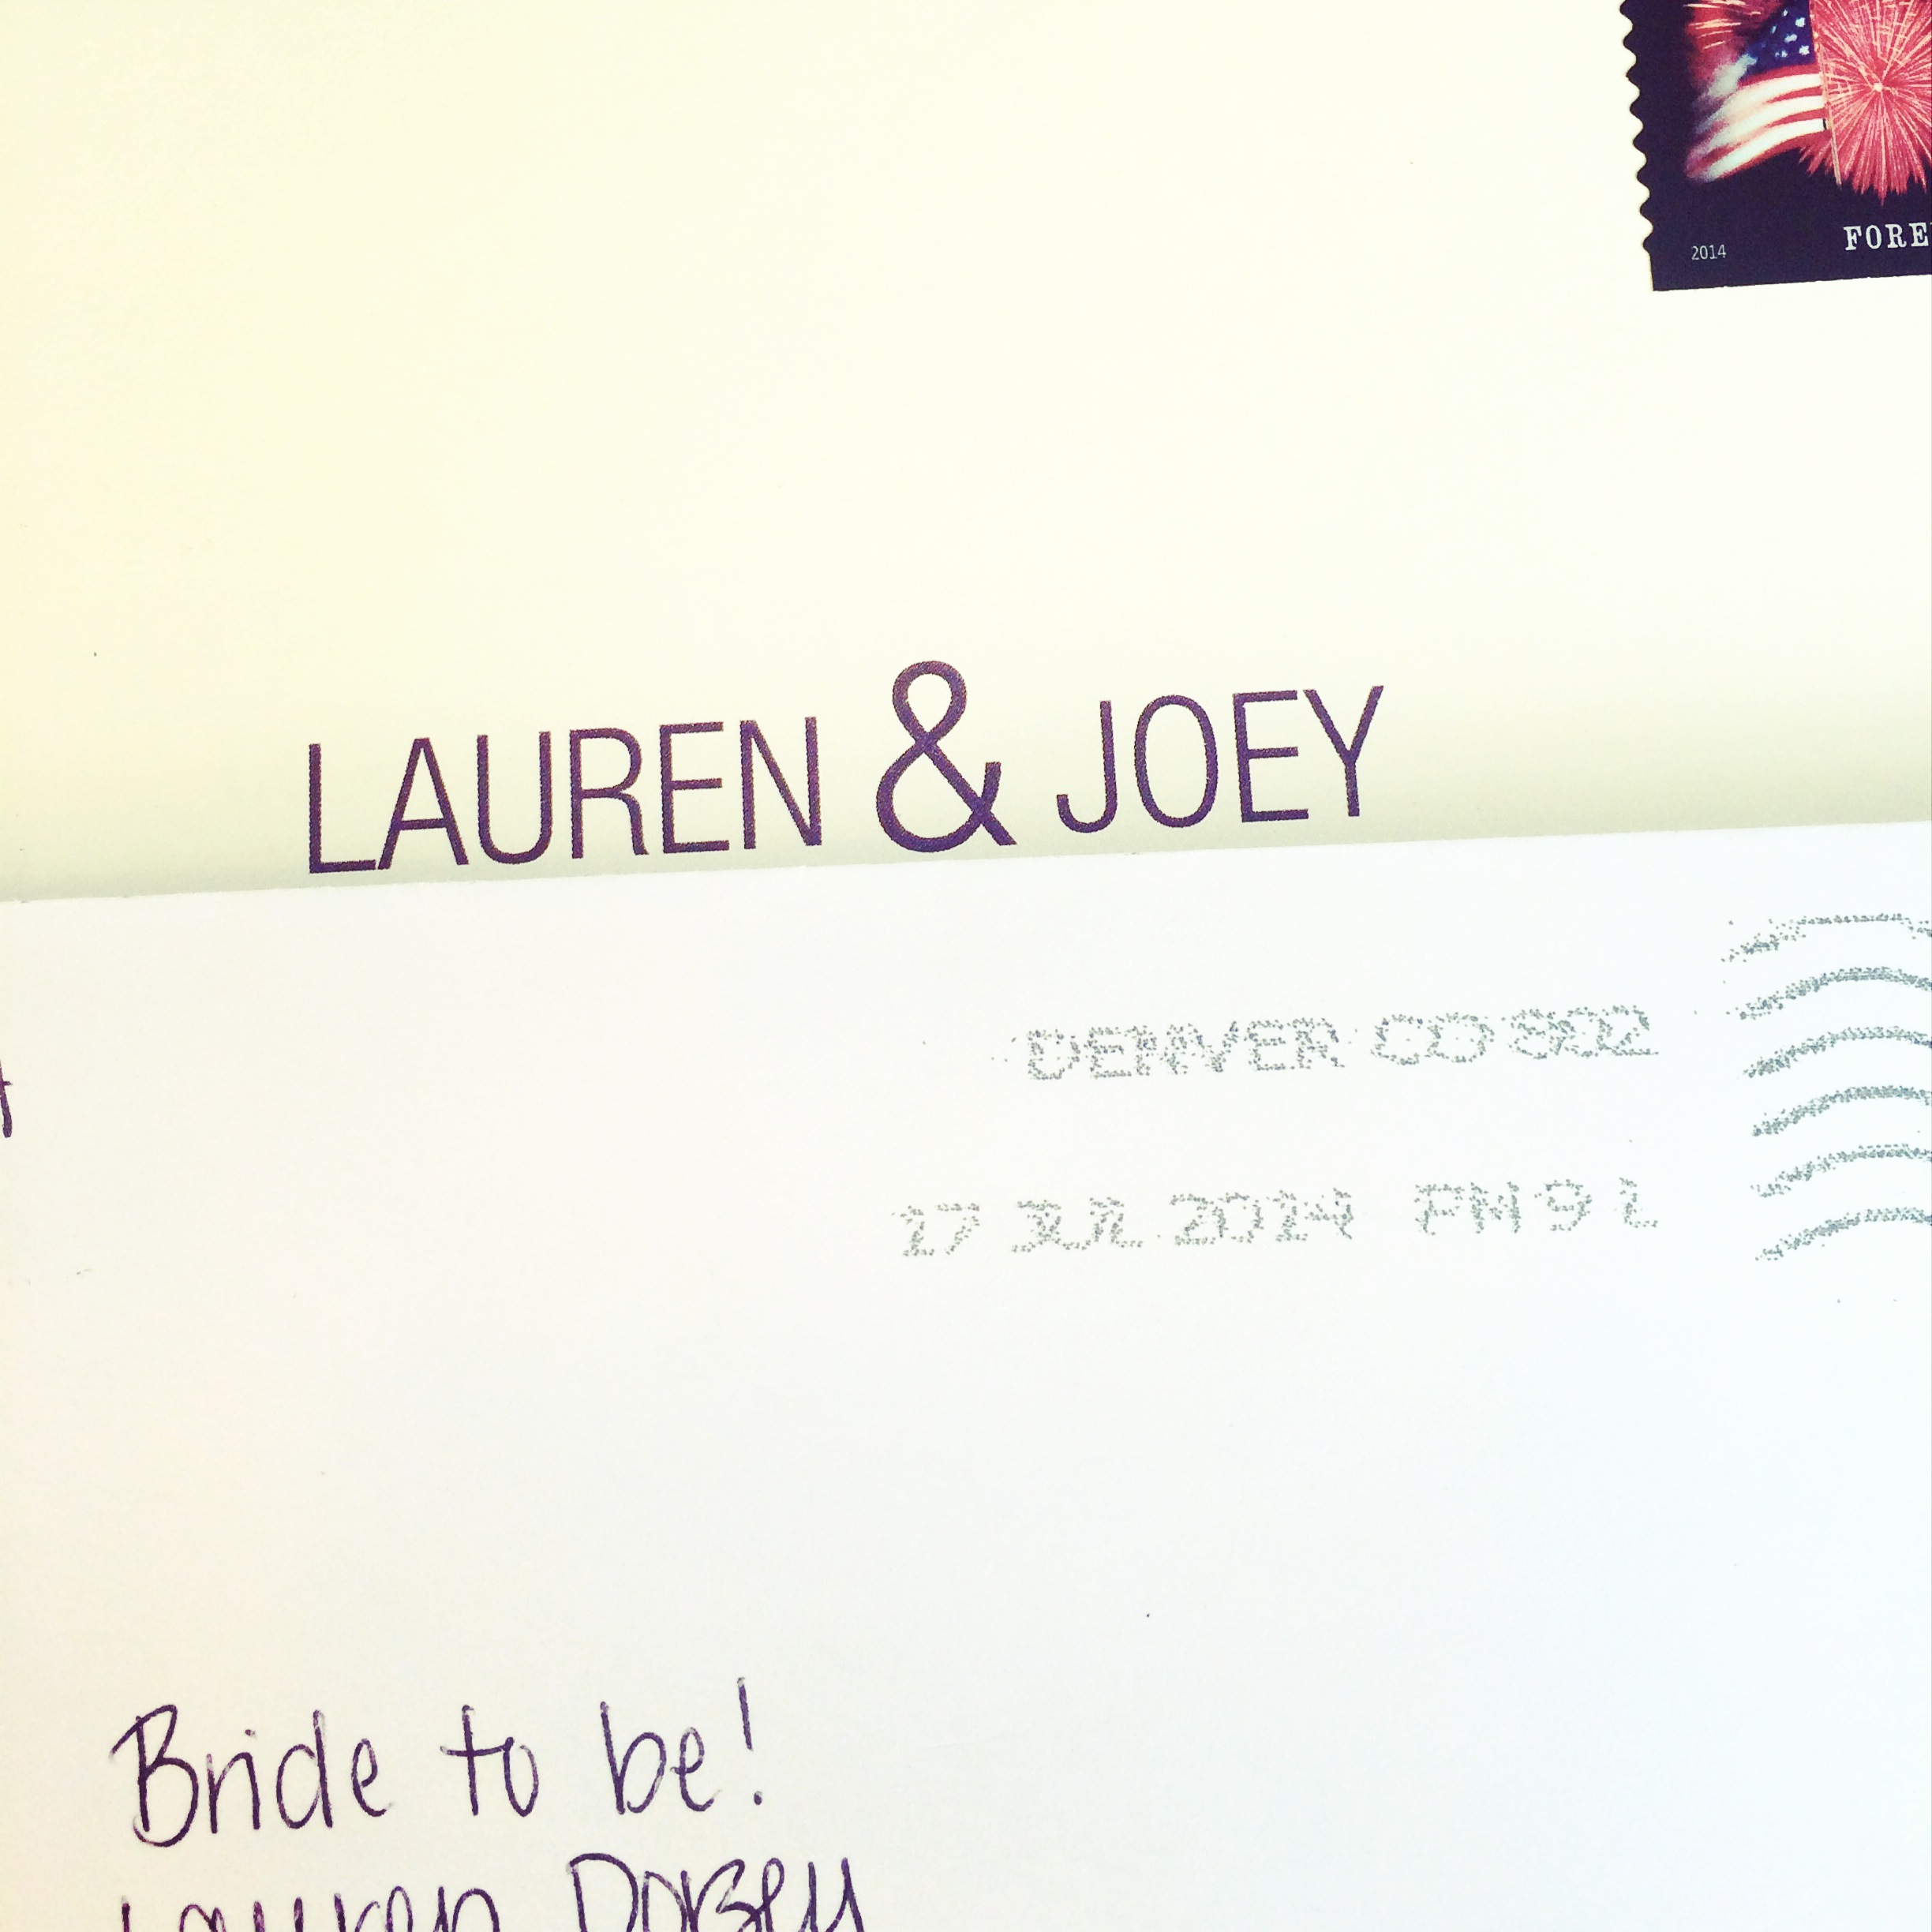 2014 FORE
LAUREN & JOEY
DENVER CO 802
17 JUL 2014 PM 9 L
Bride to be!
Lauren